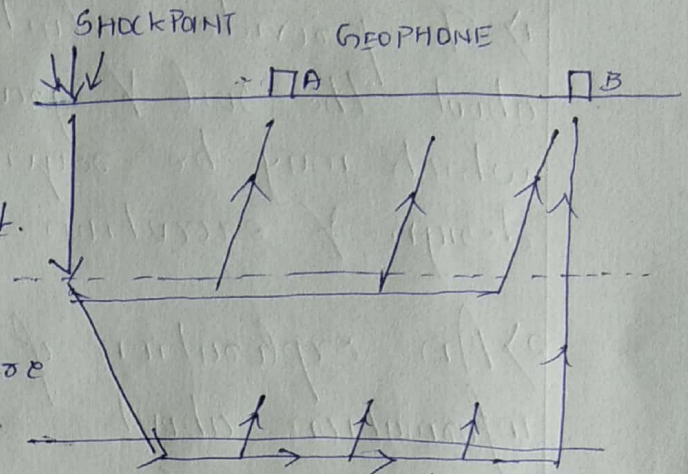 SHOCKPOINT
GEOPHONE
A
B
t.
oe